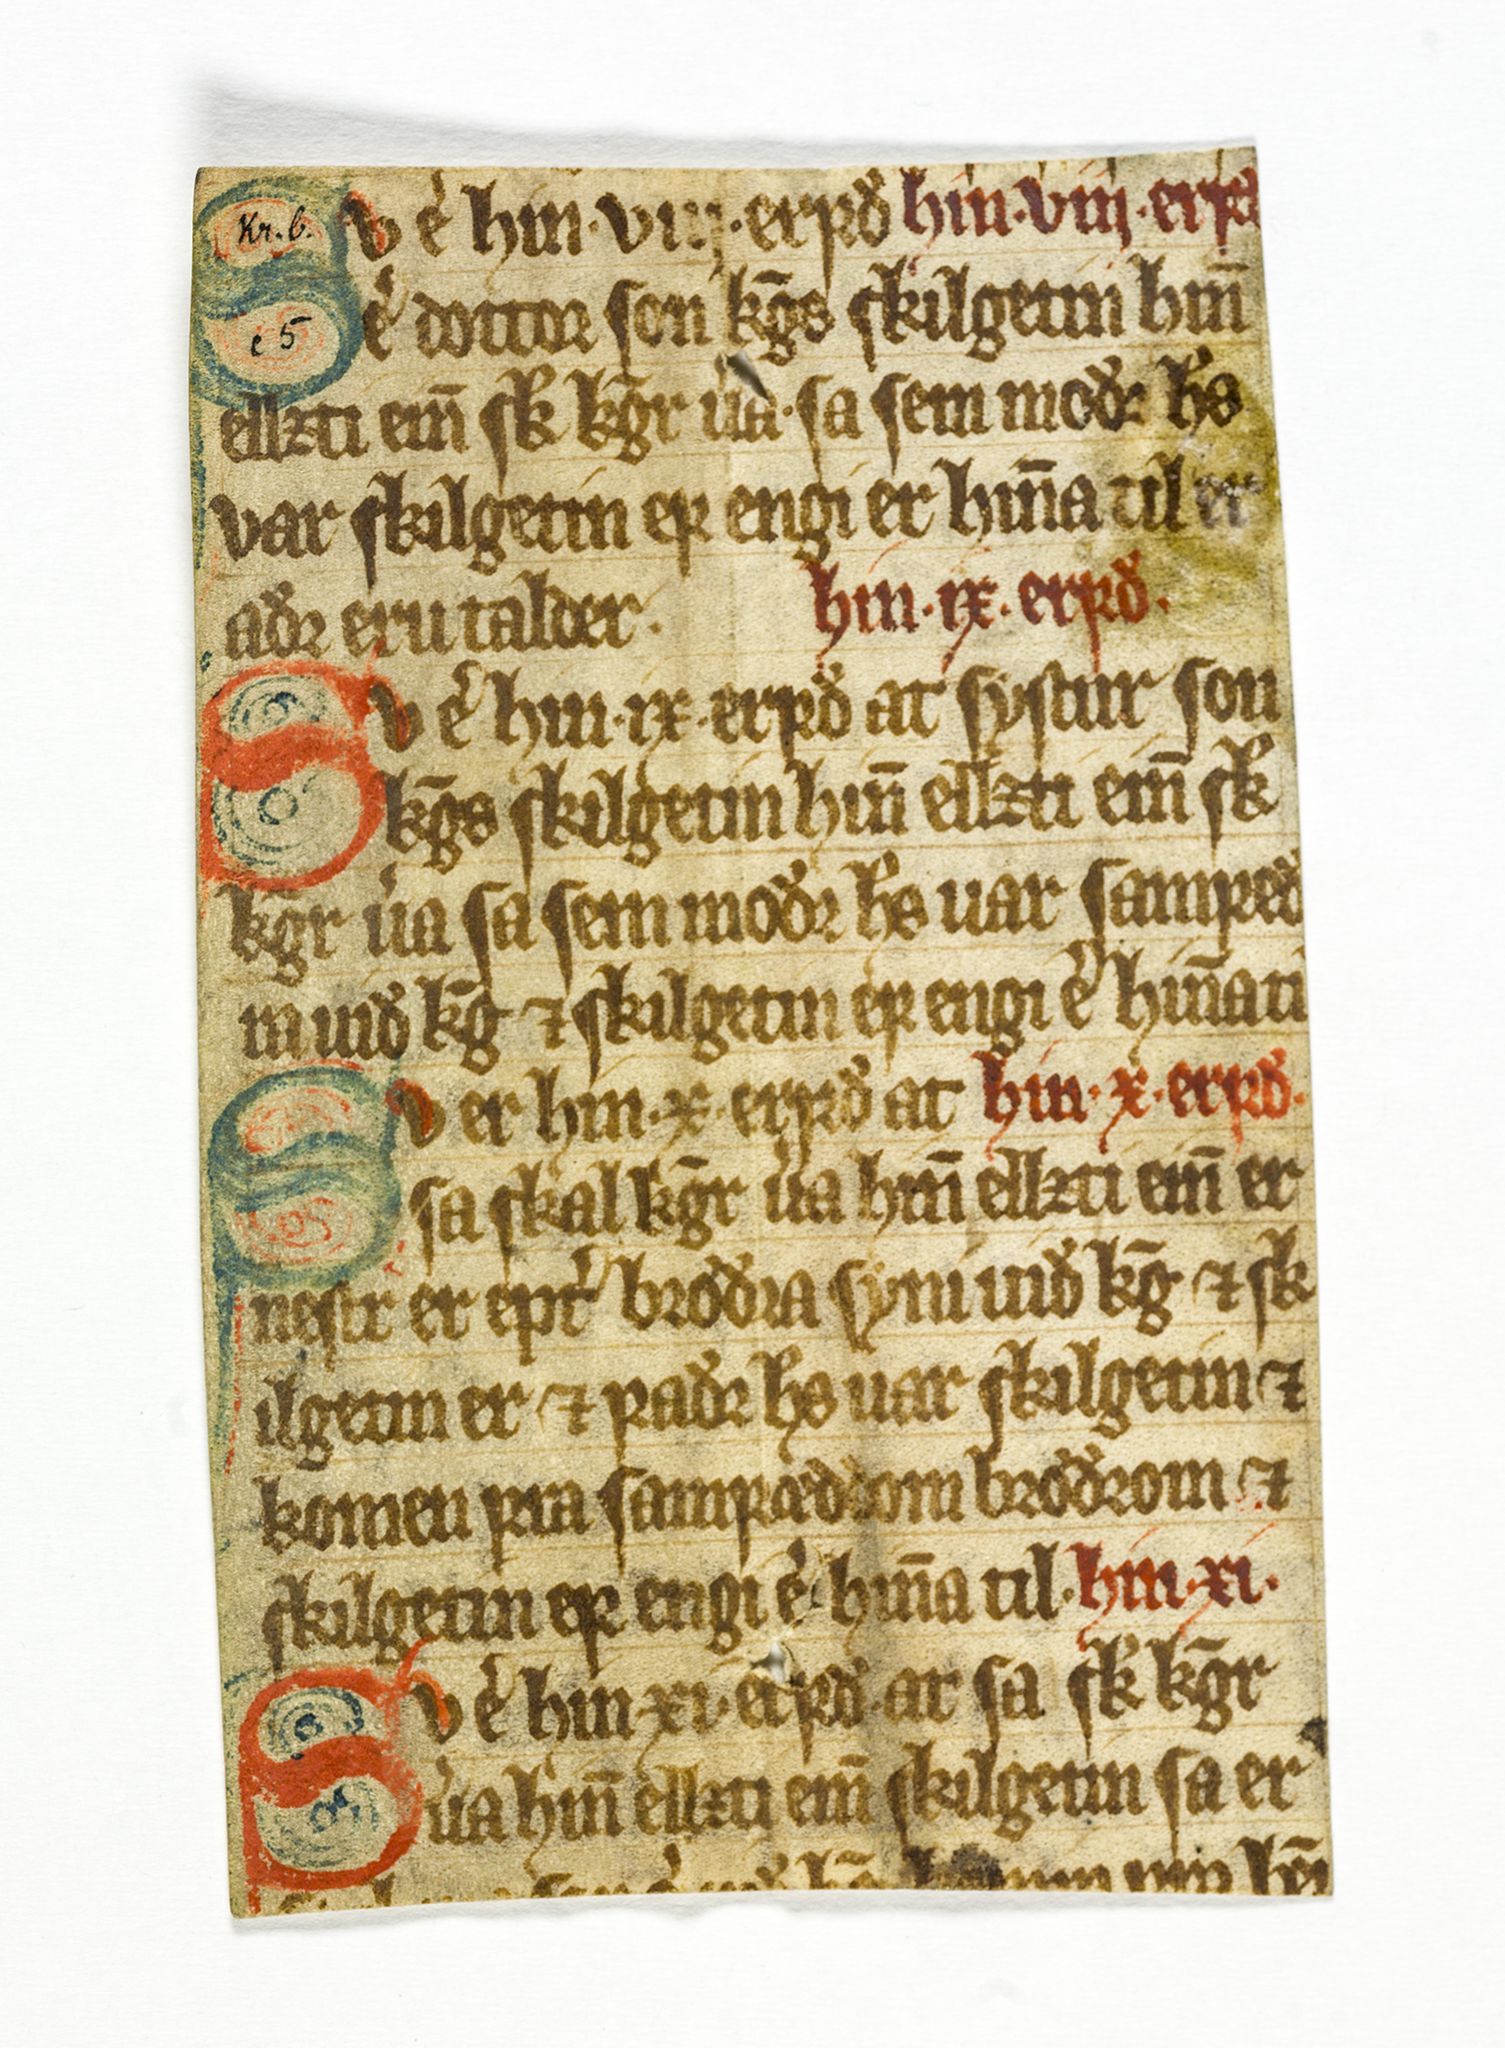 Kr. b.
Sv e͛ hin·viij·erfð hin·viij·erfð
e 5
e͛ dottor son kg̅s skilgetin hin̅
ellzti ein̅ sk kg̅r u͛a·sa sem moðꝛ hs
var skilgetin ef engi er hin̅a til er
aðꝛ eru talder· hin·ix·erfð·
Sv e͛ hin·ix·erfð at systur son
kg̅s skilgetin hin̅ ellzti ein̅ sk
kg̅r u͛a sa sem moðꝛ hs uar samfeð
ra uið kg̅ ⁊ skilgetin ef engi e͛ hin̅a ti
Sv er hin·x·erfð at hin·x·erfð·
sa skal kg̅r ua hin̅ ellzti ein̅ er
nestr er ept͛ brꝍðra syni uið kg̅ ⁊ sk
ilgetin er ⁊ faðꝛ hs uar skilgetin ⁊
komen fra samfꝍðrom brꝍðrom ⁊
skilgetin ef engi e͛ hin̅a til·hin·xi·
Sv e͛ hin·xi·erfð·at sa sk kg̅r
u͛a hin̅ ellzti ein̅ skilgetin sa er